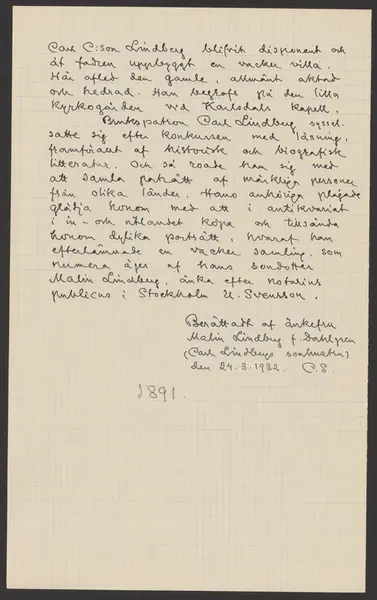 Carl C:son Lindberg blifvit disponent och
åt fadren uppbyggt en vacker villa.
Här afled den gamle, allmänt aktad
och hedrad. Han begrofs på den lilla
kyrkogården vid Karlsdals kapell.
Brukspatron Carl Lindberg syssel-
satte sig efter konkursen med läsning,
framförallt af historisk och biografisk
litteratur. Och så roade han sig med
att samla porträtt af märkliga personer
från olika länder. Hans anhöriga plägade
glädja honom med att i antikvariat
i in- och utlandet köpa och tillsända
honom dylika porträtt, hvaraf han
efterlämnade en vacker samling, som
numera äges af hans sondotter
Malin Lindberg, änka efter notarius
publicus i Stockholm U. Svensson.
Berättadt af änkefru
Malin Lindberg f. Dahlgren
(Carl Lindbergs sonhustru)
den 24.3.1932. C.S.
1891.